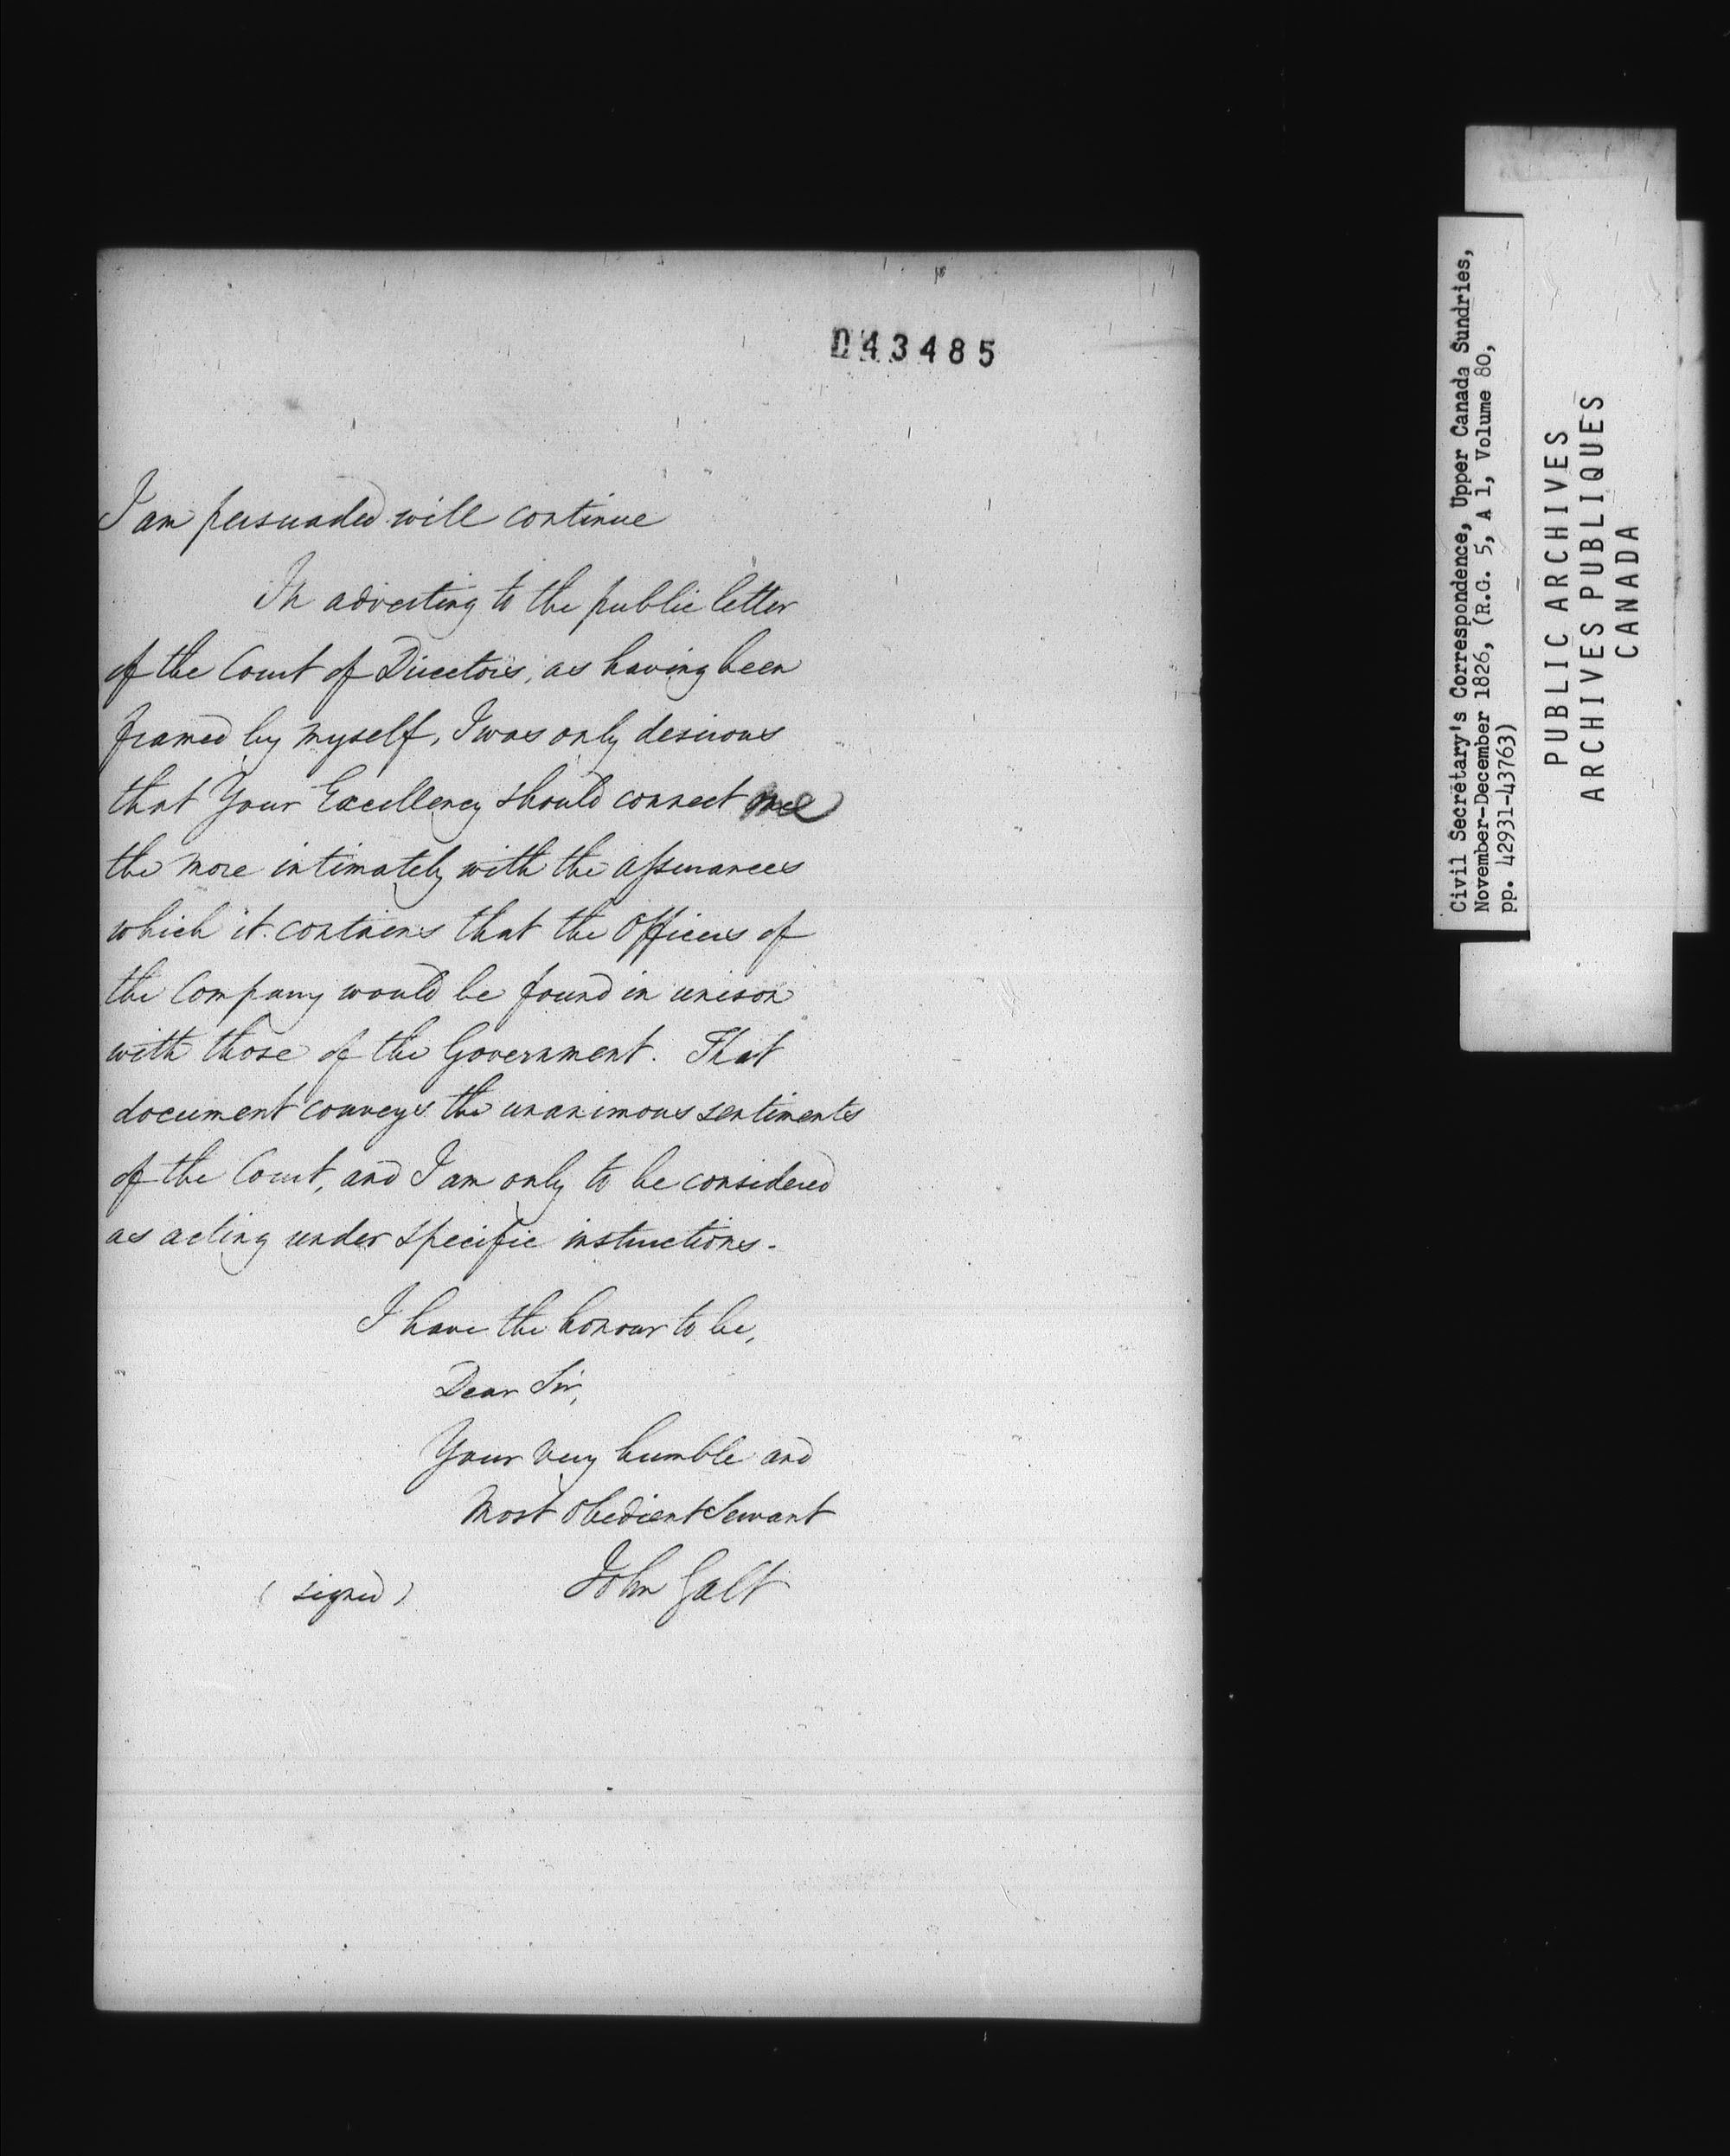 D43485
I am persuaded will continue
In adverting to the public letter
of the Court of Directors, as having been
framed by myself, I was only desirous
that Your Excellency should connect me
the more intimately with the assurances
which it contains that the Officers of
the Company would be found in unison
with those of the Government. That
document conveys the unanimous sentiments
of the Court, and I am only to be considered
as acting under specific instructions.
I have the honour to be,
Dear Sir,
Your very humble and
Most Obedient Servant
(signed) John Galt
Civil Secretary's Correspondence, Upper Canada Sundries,
November-December 1826, (R.G. 5, A 1, Volume 80,
pp. 42931-43763)
PUBLIC ARCHIVES
ARCHIVES PUBLIQUES
CANADA